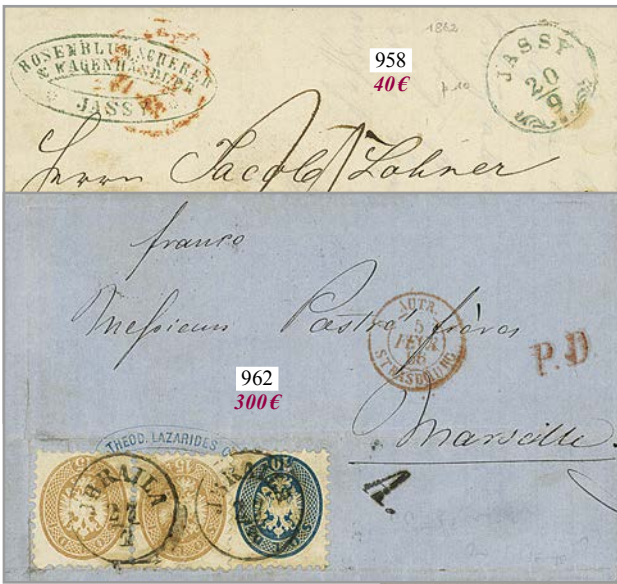 ROSENBLUM SCHERER
& WAGENHÄNDLER
JASSY
1862
958
40 €
JASSY
20/9
p. 10
Herrn Jacob Lohner
franco
Messieurs Pastré frères
AUTR.
5
FEVR
66
STRASBOURG
P.D.
962
300 €
Marseille.
THEOD. LAZARIDES
IBRAILA
27
1
IBRAILA
15
15